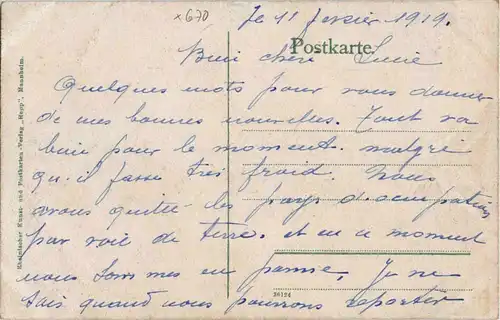 x670
Je 11 fevrier 1919.
Postkarte
Bien chère Lucie
Quelques mots pour vous donner
de mes bonnes nouvelles. Tout va
bien pour le moment. malgré
qu'il fasse très froid. Nous
avons quitté les pays d'occupation
par voie de terre. et en ce moment
nous sommes en panne, Je ne
sais quand nous pourrons repartir
Rheinischer Kunst- und Postkarten-Verlag „Hepp", Mannheim.
26124